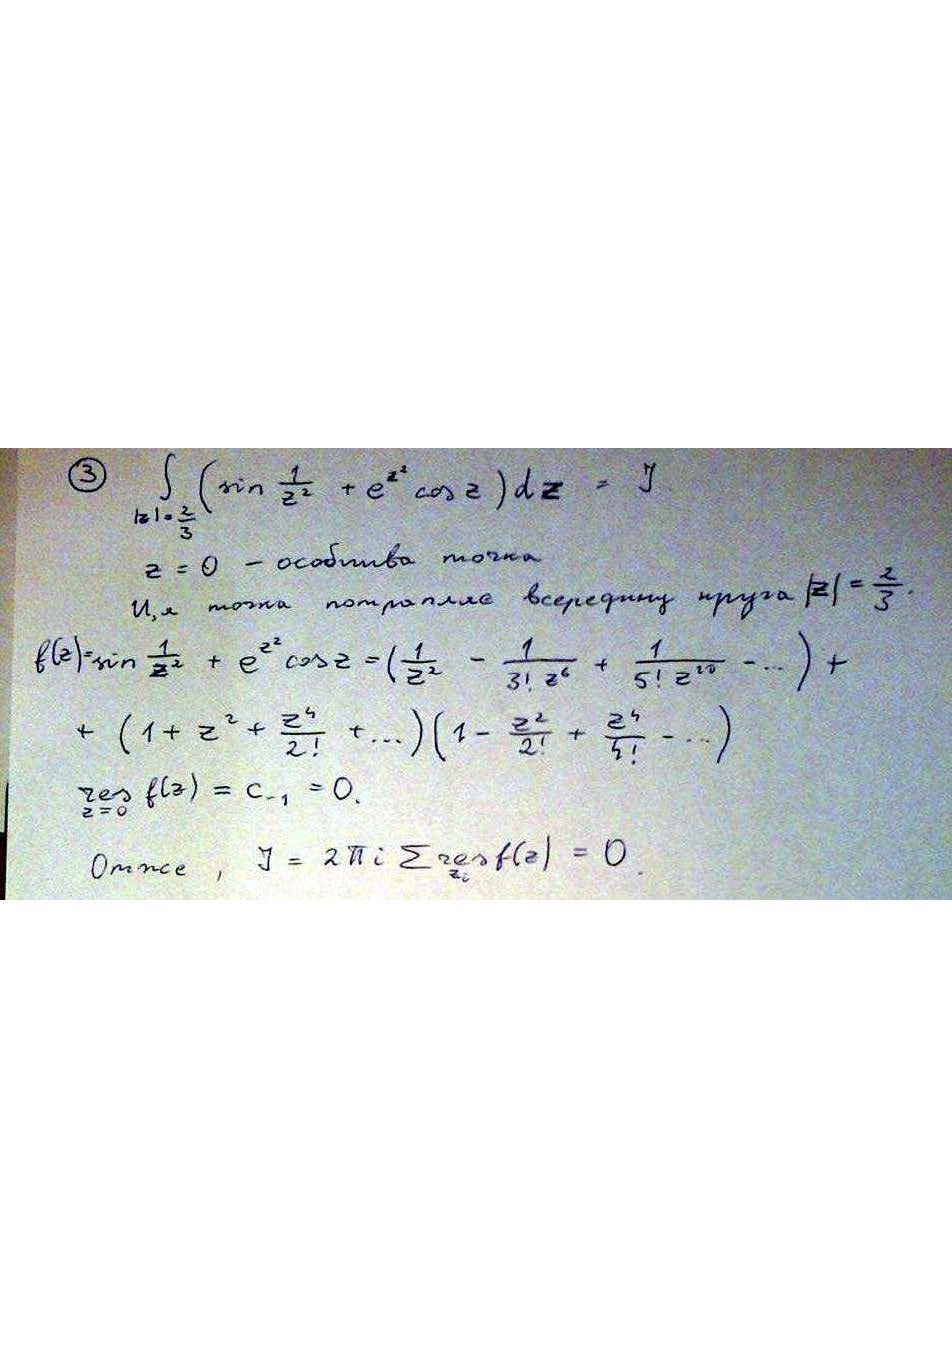 ③ ∫_{|z|=2/3} (sin 1/z² + e^{z²} cos z) dz = J
z = 0 – особлива точка
Ця точка потрапляє всередину круга |z| = 2/3.
f(z) = sin 1/z² + e^{z²} cos z = (1/z² - 1/(3! z⁶) + 1/(5! z¹⁰) - ...) +
+ (1 + z² + z⁴/2! + ...)(1 - z²/2! + z⁴/4! - ...)
res_{z=0} f(z) = c₋₁ = 0.
Отже, J = 2πi Σ res_{zᵢ} f(z) = 0.